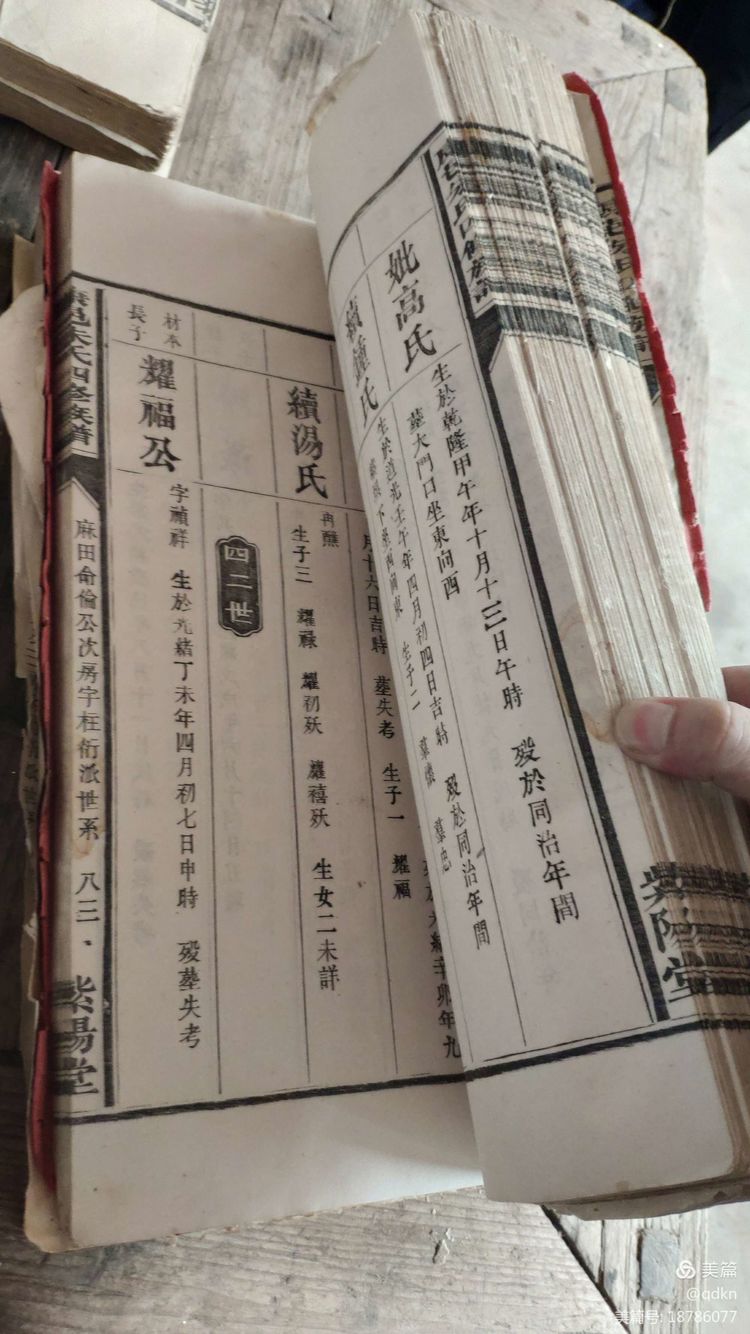 妣高氏
生於乾隆甲午年十月十三日午時 歿於同治年間
墓大門口坐東向西
續鍾氏
生於道光壬午年四月初四日吉時 歿於同治年間
生子二
月十六日吉時 墓失考 生子一 耀福
續湯氏
再醮
生子三 耀祿 耀初殀 耀禧殀 生女二未詳
四二世
材本
長子
耀福公
字禎祥 生於光緒丁未年四月初七日申時 歿墓失考
朱氏四修族譜
麻田命倫公次房字枉衍派世系 八三、
紫陽堂
紫陽堂
美篇
@qdkn
美篇号: 18786077